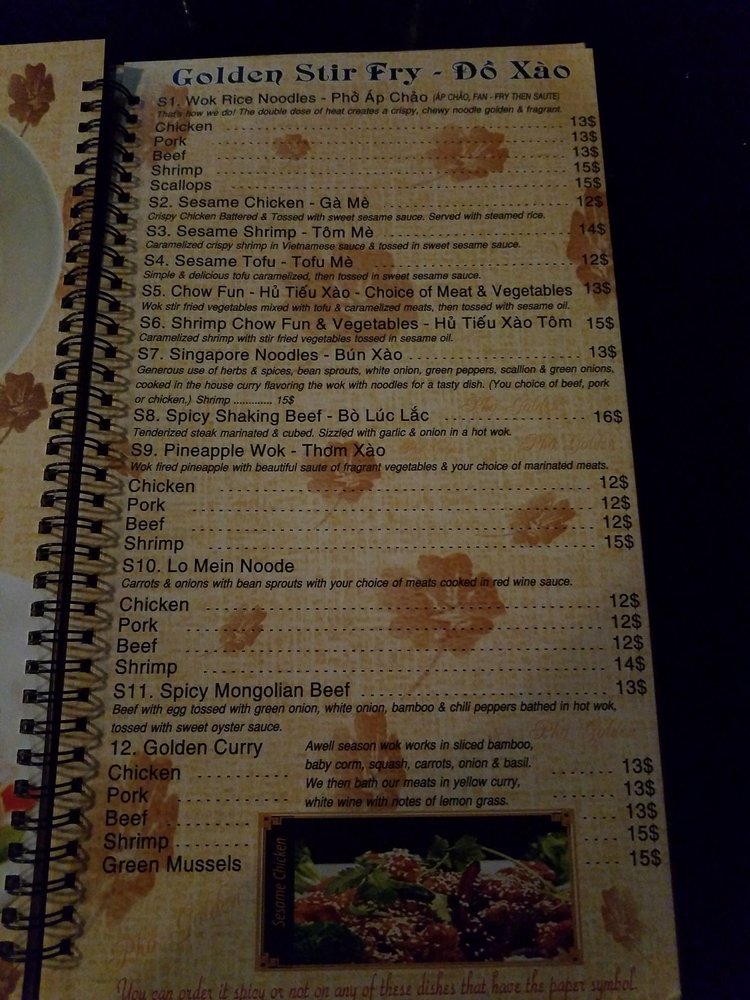 Golden Stir Fry - Đồ Xào
S1. Wok Rice Noodles - Phở Áp Chảo (ÁP CHẢO, FAN - FRY THEN SAUTE)
That's how we do! The double dose of heat creates a crispy, chewy noodle golden & fragrant.
Chicken 13$
Pork 13$
Beef 13$
Shrimp 15$
Scallops 15$
S2. Sesame Chicken - Gà Mè 12$
Crispy Chicken Battered & Tossed with sweet sesame sauce. Served with steamed rice.
S3. Sesame Shrimp - Tôm Mè 14$
Caramelized crispy shrimp in Vietnamese sauce & tossed in sweet sesame sauce.
S4. Sesame Tofu - Tofu Mè 12$
Simple & delicious tofu caramelized, then tossed in sweet sesame sauce.
S5. Chow Fun - Hủ Tiếu Xào - Choice of Meat & Vegetables 13$
Wok stir fried vegetables mixed with tofu & caramelized meats, then tossed with sesame oil.
S6. Shrimp Chow Fun & Vegetables - Hủ Tiếu Xào Tôm 15$
Caramelized shrimp with stir fried vegetables tossed in sesame oil.
S7. Singapore Noodles - Bún Xào 13$
Generous use of herbs & spices, bean sprouts, white onion, green peppers, scallion & green onions,
cooked in the house curry flavoring the wok with noodles for a tasty dish. (You choice of beef, pork
or chicken.) Shrimp ............. 15$
S8. Spicy Shaking Beef - Bò Lúc Lắc 16$
Tenderized steak marinated & cubed. Sizzled with garlic & onion in a hot wok.
S9. Pineapple Wok - Thơm Xào
Wok fired pineapple with beautiful saute of fragrant vegetables & your choice of marinated meats.
Chicken 12$
Pork 12$
Beef 12$
Shrimp 15$
S10. Lo Mein Noode
Carrots & onions with bean sprouts with your choice of meats cooked in red wine sauce.
Chicken 12$
Pork 12$
Beef 12$
Shrimp 14$
S11. Spicy Mongolian Beef 13$
Beef with egg tossed with green onion, white onion, bamboo & chili peppers bathed in hot wok,
tossed with sweet oyster sauce.
12. Golden Curry
Awell season wok works in sliced bamboo,
baby corm, squash, carrots, onion & basil.
We then bath our meats in yellow curry,
white wine with notes of lemon grass.
Chicken 13$
Pork 13$
Beef 13$
Shrimp 15$
Green Mussels 15$
Sesame Chicken
You can order it spicy or not on any of these dishes that have the paper symbol.